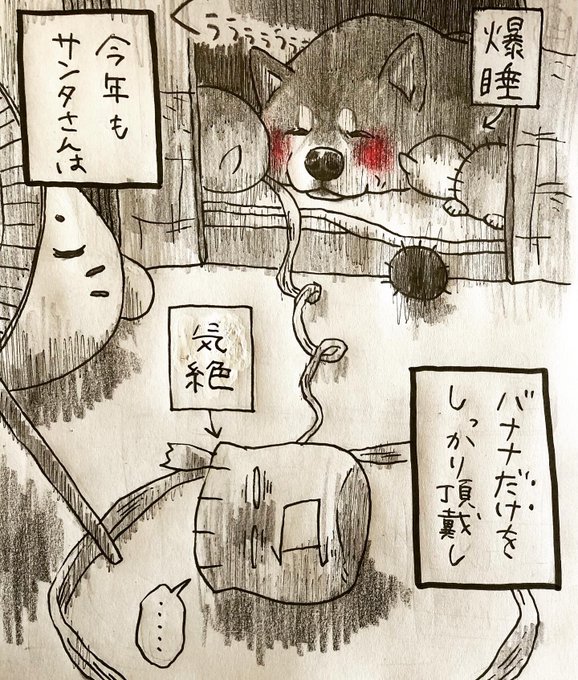 爆睡
うううううう
今年も
サンタさんは
気絶
バナナだけを
しっかり頂戴し
……